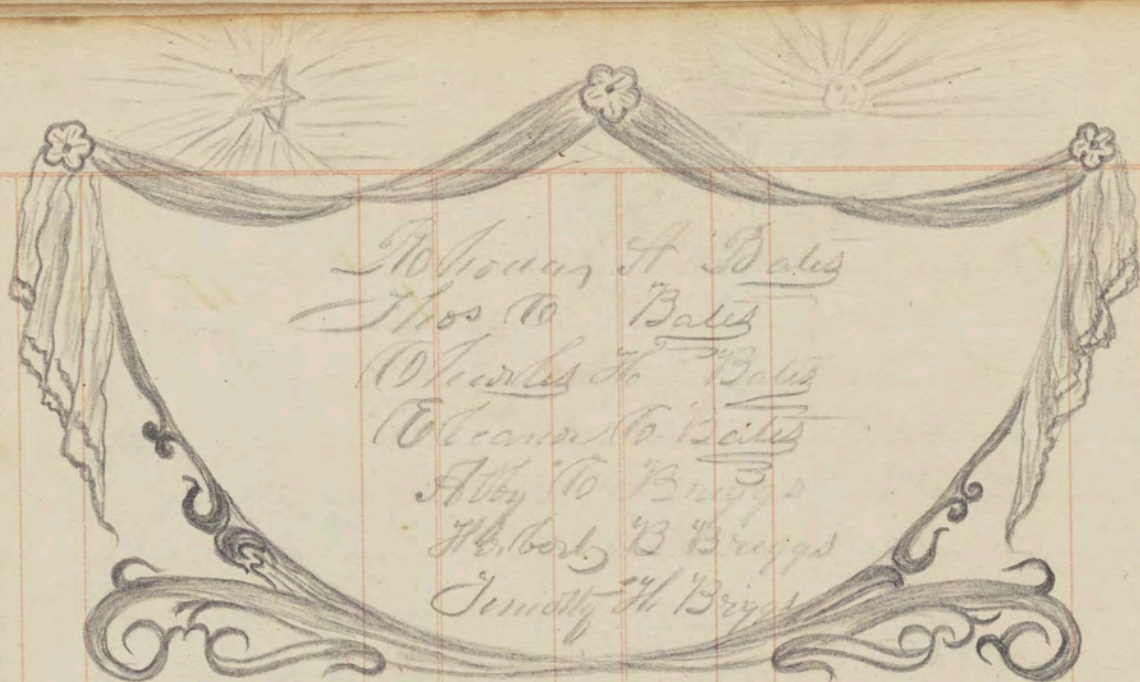 A Bates
Thos C Bates
Charles H Bates
Eleanor C Bates
Abby C Briggs
Herbert B Briggs
H Briggs